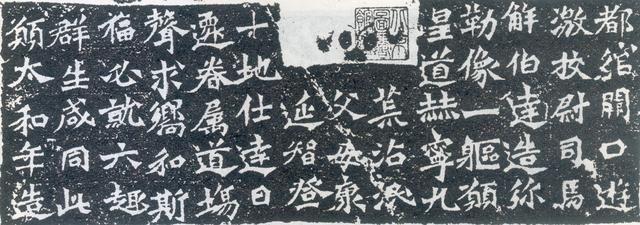 都綰闕口遊
激校尉司馬
解伯達造弥
勒像一軀願
皇道赫寧九
荒沾澤
父母康
延智登
十地仕達日
遷眷属道場
聲求響和斯
福必就六趣
群生咸同此
願太和年造